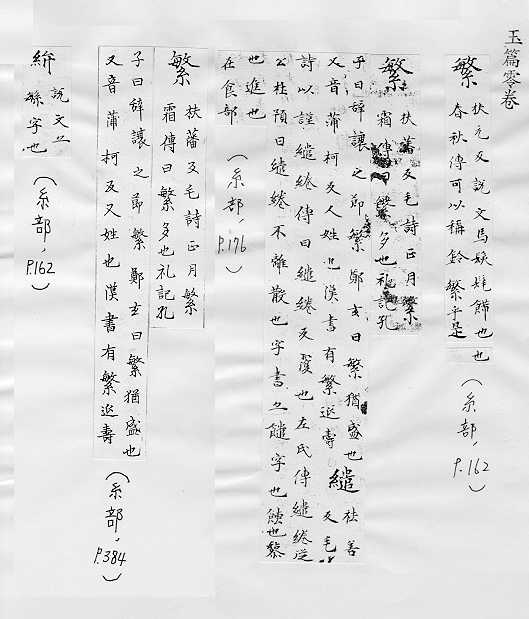 玉篇零卷
繁 扶元反說文馬䰂髦飾也也
春秋傳可以稱鈴繁乎是
(糸部, P.162)
繁 扶藩反毛詩正月繁
霜傳曰繁多也礼記孔
子曰辞讓之節繁鄭玄曰繁猶盛也
又音蒲柯反人姓也漢書有繁延壽 繾 祛善反毛
詩以謹繾綣傳曰繾綣反覆也左氏傳繾綣從
公杜預曰繾綣不離散也字書亦䭤字也䭤也黏
也進也
在食部
(糸部, P.176)
繁 扶藩反毛詩正月繁
霜傳曰繁多也礼記孔
子曰辞讓之節繁鄭玄曰繁猶盛也
又音蒲柯反又姓也漢書有繁延壽
(糸部, P.384)
說文亦
字也
(糸部, P.162)